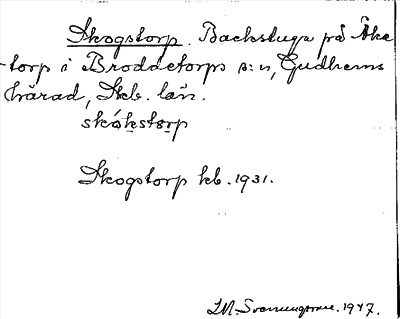 Skogstorp. Backstuga på Åke
-torp i Broddetorps s:n, Gudhems
härad, Skb. län.
skókstorp
Skogstorp kb. 1931.
I.M. Svenungsson. 1947.